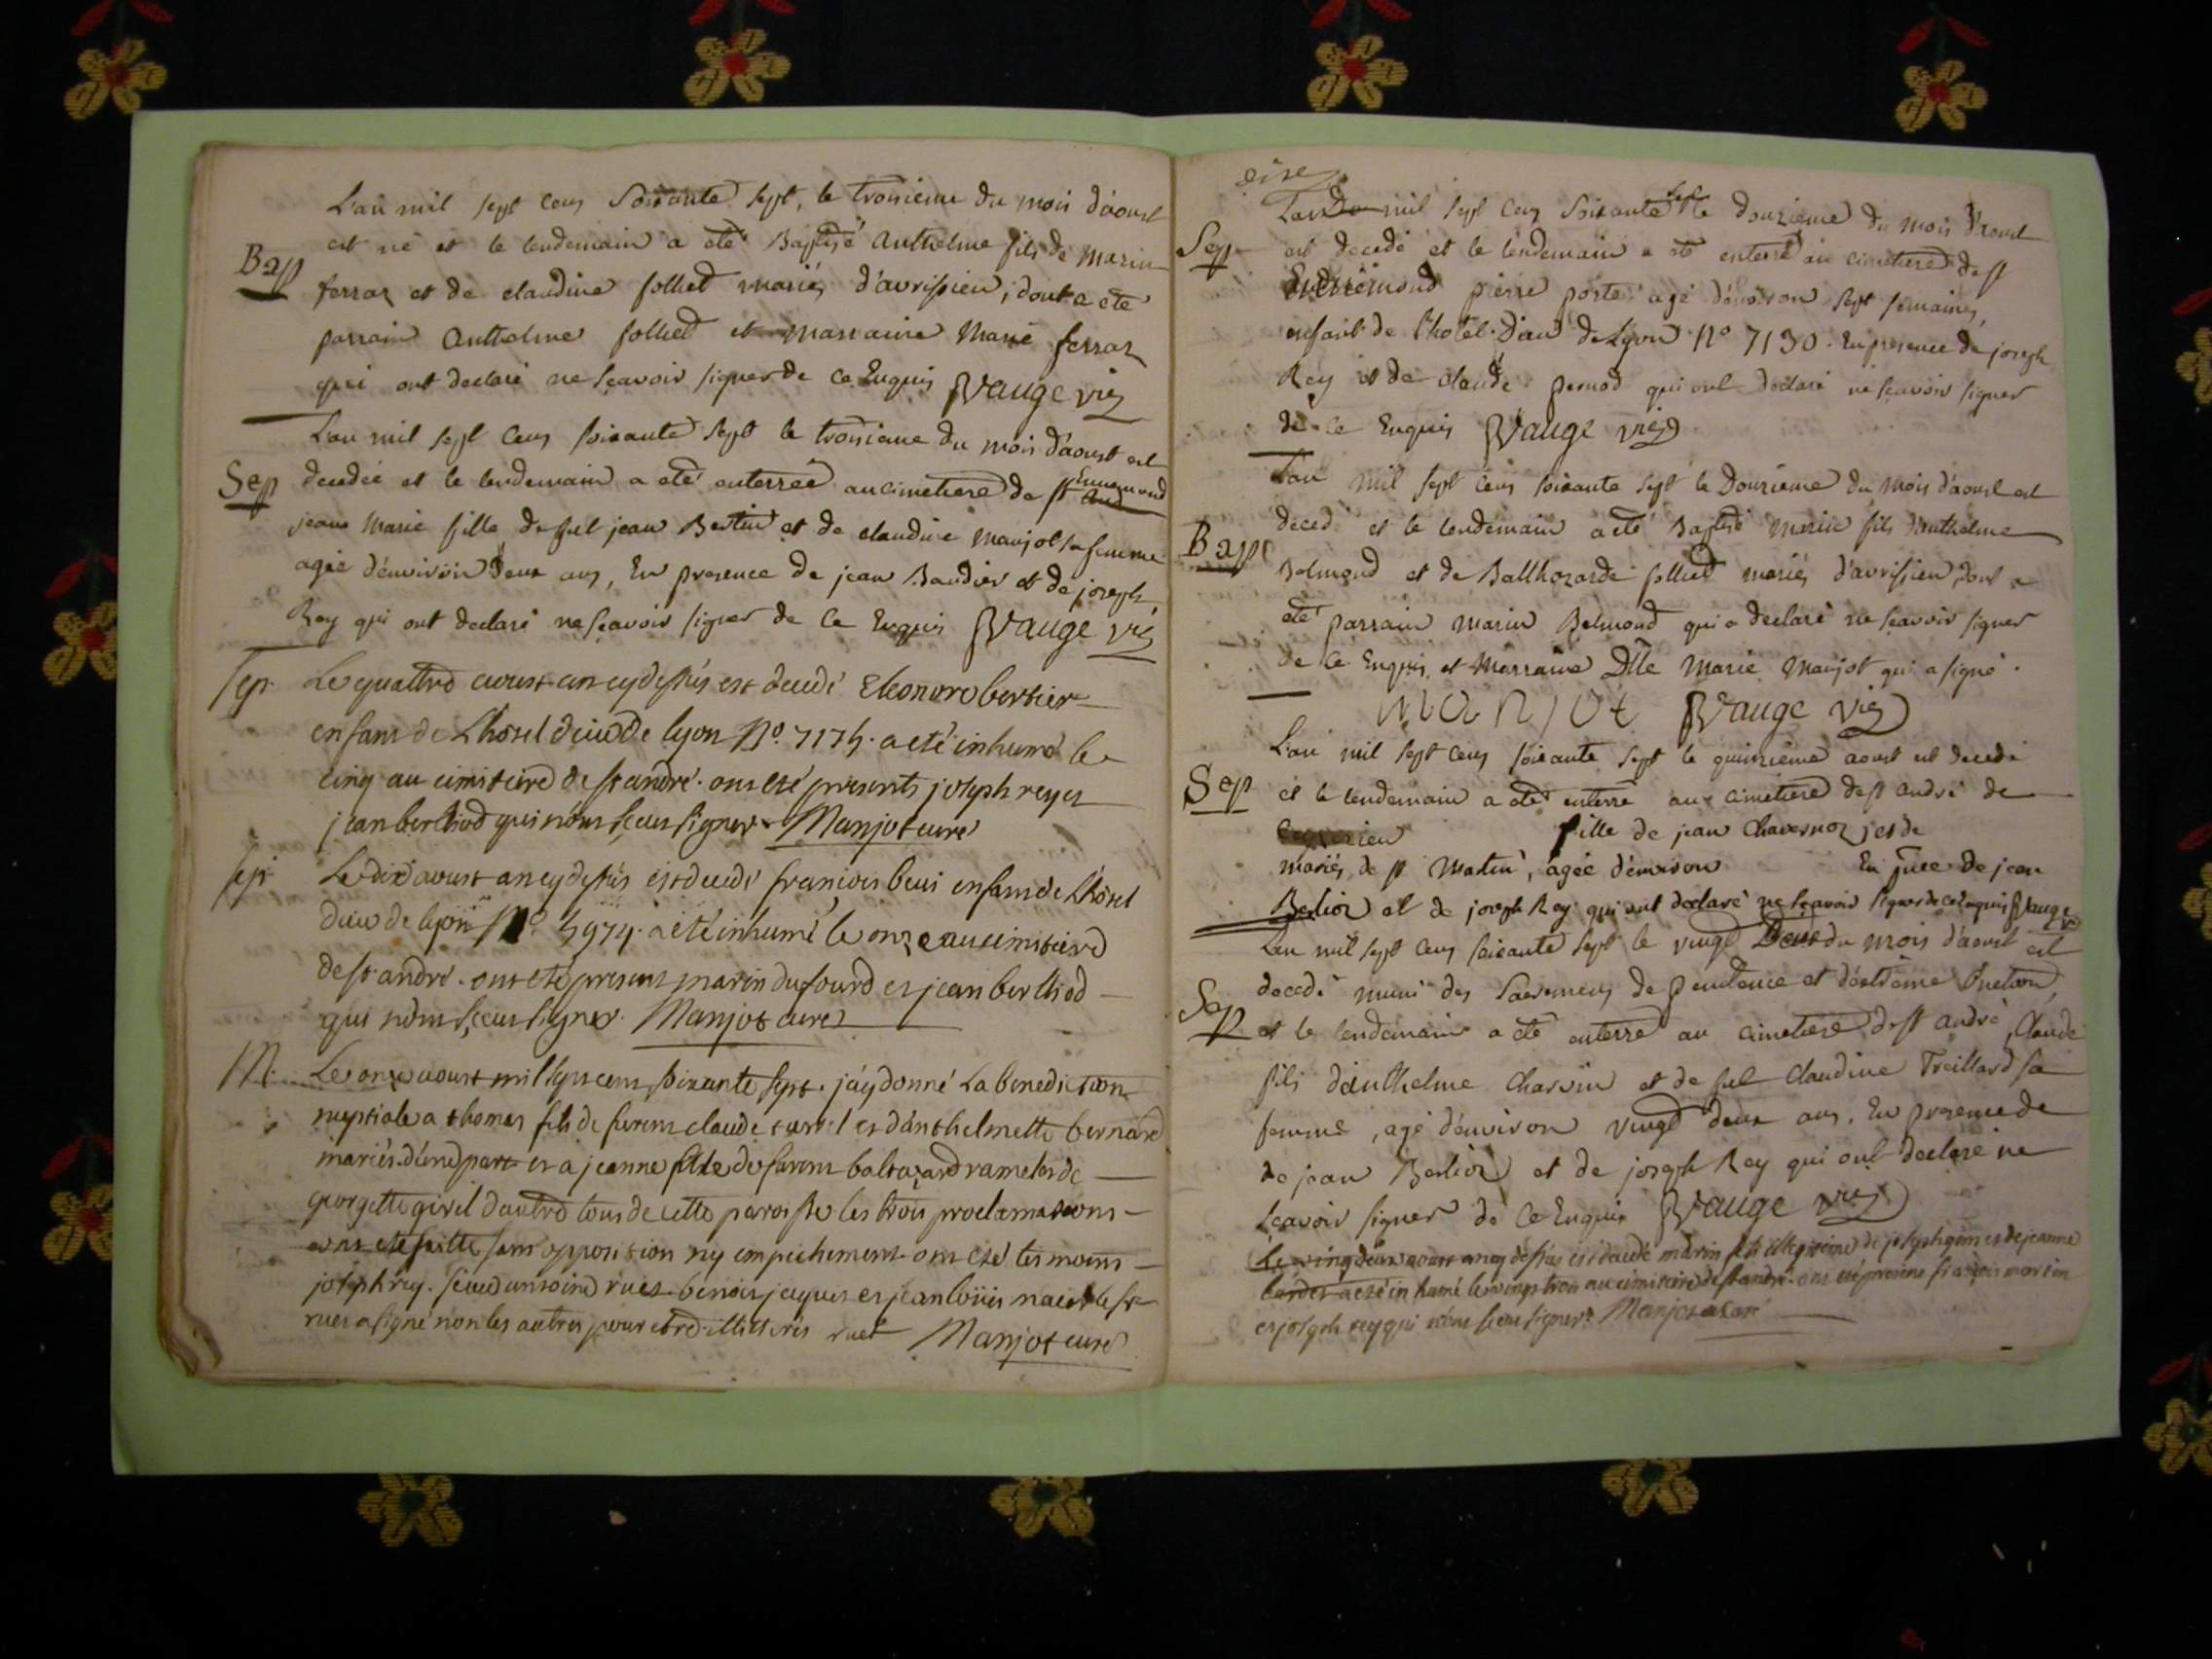 L'an mil sept cens Soixante Sept, le troisieme du mois d'aoust
est né et le lendemain a eté Baptisé Anthelme fils de Marin
Bap
ferraz et de claudine folliet mariés d'avrissieu, dont a eté
parrain Anthelme folliet et marraine Marie ferraz
qui ont declaré ne sçavoir signer de ce Enquis Vauge vic
L'an mil sept Cens soixante Sept le troisieme du mois d'aoust est
Sep decedée et le lendemain a eté enterrée au cimetiere de st Ennemond
jeane Marie fille de fut jean Bertin et de claudine Manjot sa femme
agée d'environ deux ans, En presence de jean Baudier et de joseph
Rey qui ont declaré ne sçavoir signer de ce Enquis Vauge vic
Sep. Le quattre aoust an cy dessus est decedé Eleonore bertier
enfant de L'hotel dieu de lyon No. 7175. a eté inhumé le
cinq au cimitiere de st andré. ont eté presents joseph rey et
jean berthod qui n'ont sceus signer. Manjot curé
Sep. Le dix aoust an cy dessus est decedé francois beui enfant de L'hotel
dieu de lyon No 5974. a eté inhumé le onze au cimitiere
de st. andré. ont eté presens marin dufourd et jean berthod
qui n'ont sceus signer. Manjot curé
M. Le onze aoust mil sept cens soixante sept. j'ay donné La benediction
nuptiale a thomas fils de furent claude et d'anthelmette bernard
mariés. d'une part et a jeanne fille de furent baltazard ramel et de
georgette givel d'autre tous de cette paroisse les trois proclamations
ont eté faitte sans opposition ny empechement. ont eté tesmoins
joseph rey. sieur antoine ruet. benoit jaques et jean louis le sr
ruet a signé non les autres pour etre illitterés ruet Manjot curé
L'an mil sept Cens Soixante sept le douzieme du mois d'aoust
Sep est decedé et le lendemain a eté enterré au cimetiere de st
Ennemond pierre porte agé d'environ sept semaines,
enfant de l'hotel Dieu de Lyon No 7130. En presence de joseph
Rey et de claude pernod qui ont declaré ne sçavoir signer
de ce Enquis Vauge vic
L'an mil sept cens soixante sept le Douzieme du mois d'aoust est
deced et le lendemain a eté Baptisé Marin fils d'anthelme
Bap
Belmond et de Balthazarde folliet mariés d'avrissieu, dont a
eté parrain marin Belmond qui a declaré ne sçavoir signer
de ce Enquis, et Marraine Dlle Marie Manjot qui a signé.
manjot Vauge vic
L'an mil sept cens soixante sept le quinzieme aoust est decedé
Sep et le lendemain a eté enterré au cimetiere de st andré de
fille de jean Chavernoz, et de
mariés de st Martin, agée d'environ En pnce de jean
Berlioz et de joseph Rey qui ont declaré ne sçavoir signer de ce enquis Vauge vic
L'an mil sept cens soixante sept le vingt Deux du mois d'aoust est
decedé muni des Sacremens de penitence et d'extreme Onction
Sep et le lendemain a eté enterré au cimetiere de st andré, Claude
fils d'anthelme Charvin et de fut Claudine Treillard sa
femme, agé d'environ vingt deux ans. En presence de
de jean Berlioz et de joseph Rey qui ont declaré ne
sçavoir signer de ce Enquis Vauge vic
Le vingt deux aoust an cy dessus est decedé marin fils illegitime de joseph et de jeanne
a eté inhumé le vingt trois au cimitiere de st andré. ont eté presens francois morion
et joseph rey qui n'ont sceus signer. Manjot curé